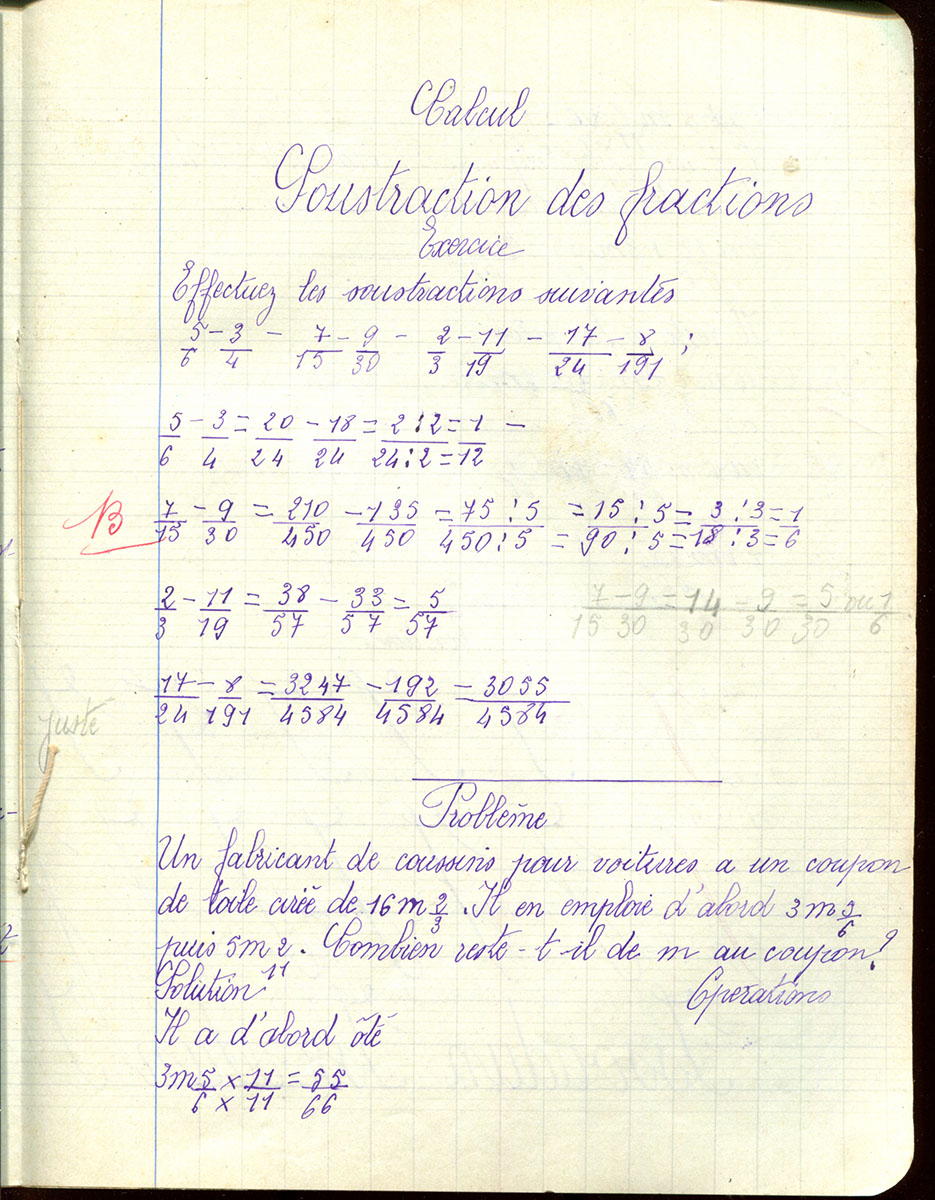 Calcul
Soustraction des fractions
Exercice
Effectuez les soustractions suivantes
5/6 - 3/4 - 7/15 - 9/30 - 2/3 - 11/19 - 17/24 - 8/191 ;
5/6 - 3/4 = 20/24 - 18/24 = 2:2/24:2 = 1/12 -
B 7/15 - 9/30 = 210/450 - 135/450 = 75:5/450:5 = 15:5/90:5 = 3:3/18:3 = 1/6
2/3 - 11/19 = 38/57 - 33/57 = 5/57
7/15 - 9/30 = 14/30 - 9/30 = 5/30 ou 1/6
17/24 - 8/191 = 3247/4584 - 192/4584 = 3055/4584
juste
Problème
Un fabricant de coussins pour voitures a un coupon
de toile cirée de 16m 2/3. Il en emploie d'abord 3m 5/6
puis 5m 2/11. Combien reste-t-il de m au coupon?
Solution Opérations
Il a d'abord ôté
3m 5/6 × 11/11 = 55/66